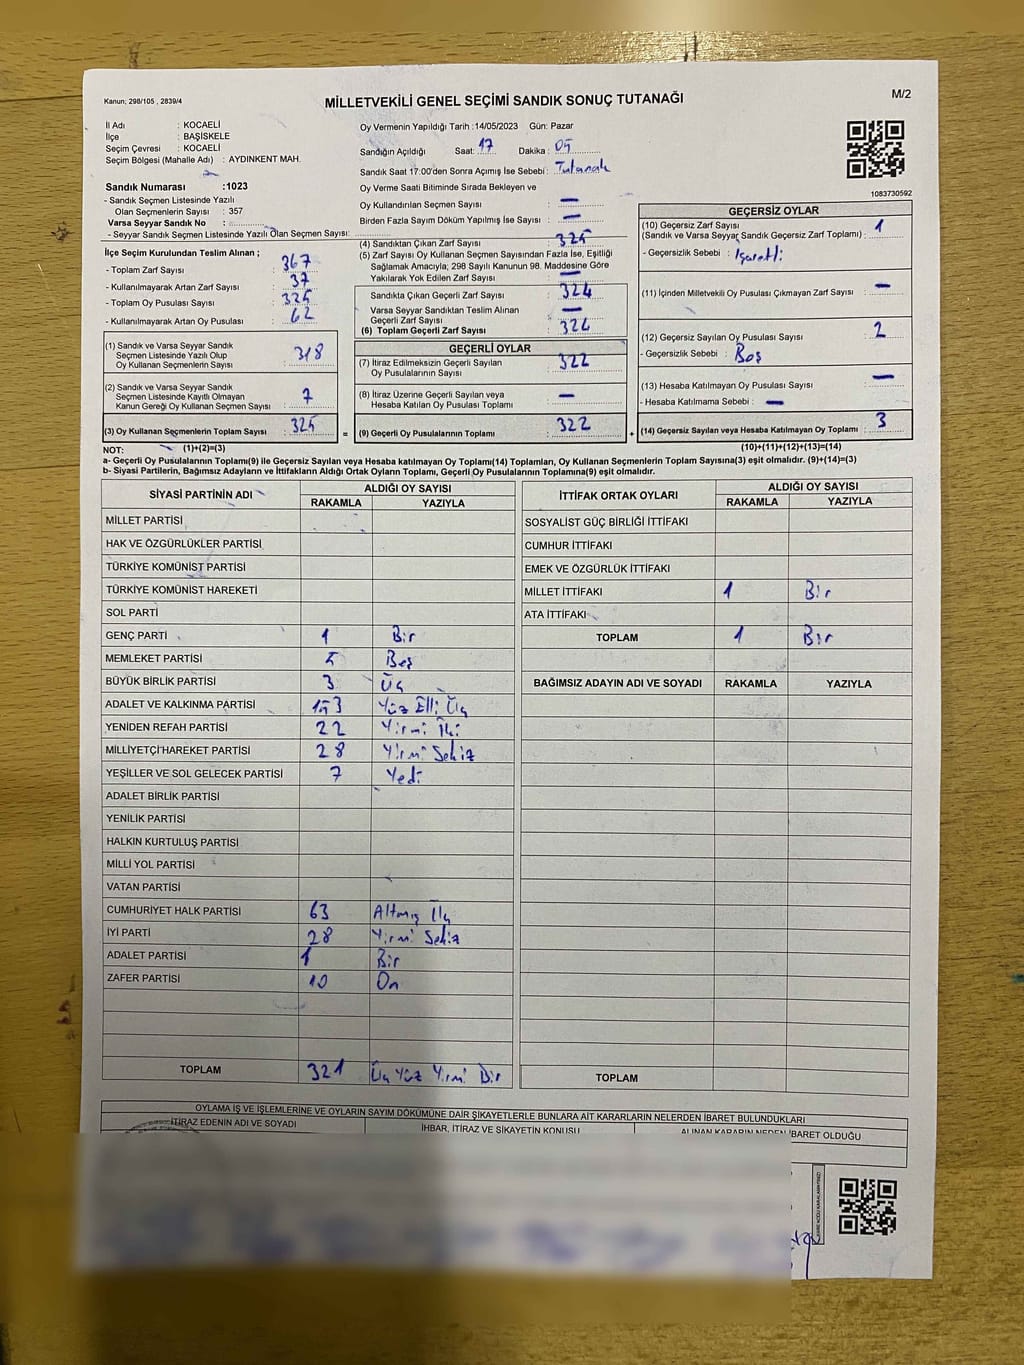 Kanun; 298/105 , 2839/4
MİLLETVEKİLİ GENEL SEÇİMİ SANDIK SONUÇ TUTANAĞI
M/2
İl Adı : KOCAELİ
İlçe : BAŞİSKELE
Seçim Çevresi : KOCAELİ
Seçim Bölgesi (Mahalle Adı) : AYDINKENT MAH.
Sandık Numarası :1023
- Sandık Seçmen Listesinde Yazılı
Olan Seçmenlerin Sayısı : 357
Varsa Seyyar Sandık No :
- Seyyar Sandık Seçmen Listesinde Yazılı Olan Seçmen Sayısı:
Oy Vermenin Yapıldığı Tarih :14/05/2023 Gün: Pazar
Sandığın Açıldığı Saat: 17 Dakika : 05
Sandık Saat 17:00'den Sonra Açımış İse Sebebi: Tutanak
Oy Verme Saati Bitiminde Sırada Bekleyen ve
Oy Kullandırılan Seçmen Sayısı : —
Birden Fazla Sayım Döküm Yapılmış İse Sayısı : —
1083730592
İlçe Seçim Kurulundan Teslim Alınan ;
- Toplam Zarf Sayısı : 367
- Kullanılmayarak Artan Zarf Sayısı : 37
- Toplam Oy Pusulası Sayısı :
- Kullanılmayarak Artan Oy Pusulası : 62
(1) Sandık ve Varsa Seyyar Sandık
Seçmen Listesinde Yazılı Olup
Oy Kullanan Seçmenlerin Sayısı : 318
(2) Sandık ve Varsa Seyyar Sandık
Seçmen Listesinde Kayıtlı Olmayan
Kanun Gereği Oy Kullanan Seçmen Sayısı : 7
(3) Oy Kullanan Seçmenlerin Toplam Sayısı : 325
(4) Sandıktan Çıkan Zarf Sayısı : 325
(5) Zarf Sayısı Oy Kullanan Seçmen Sayısından Fazla İse, Eşitliği
Sağlamak Amacıyla; 298 Sayılı Kanunun 98. Maddesine Göre
Yakılarak Yok Edilen Zarf Sayısı : —
Sandıkta Çıkan Geçerli Zarf Sayısı : 324
Varsa Seyyar Sandıktan Teslim Alınan
Geçerli Zarf Sayısı : —
(6) Toplam Geçerli Zarf Sayısı : 324
GEÇERLİ OYLAR
(7) İtiraz Edilmeksizin Geçerli Sayılan
Oy Pusulalarının Sayısı : 322
(8) İtiraz Üzerine Geçerli Sayılan veya
Hesaba Katılan Oy Pusulası Toplamı : —
= (9) Geçerli Oy Pusulalarının Toplamı : 322
GEÇERSİZ OYLAR
(10) Geçersiz Zarf Sayısı
(Sandık ve Varsa Seyyar Sandık Geçersiz Zarf Toplamı) : 1
- Geçersizlik Sebebi : İşaretli
(11) İçinden Milletvekili Oy Pusulası Çıkmayan Zarf Sayısı : —
(12) Geçersiz Sayılan Oy Pusulası Sayısı : 2
- Geçersizlik Sebebi : Boş
(13) Hesaba Katılmayan Oy Pusulası Sayısı : —
- Hesaba Katılmama Sebebi : —
+ (14) Geçersiz Sayılan veya Hesaba Katılmayan Oy Toplamı : 3
NOT: (1)+(2)=(3) (10)+(11)+(12)+(13)=(14)
a- Geçerli Oy Pusulalarının Toplamı(9) ile Geçersiz Sayılan veya Hesaba katılmayan Oy Toplamı(14) Toplamları, Oy Kullanan Seçmenlerin Toplam Sayısına(3) eşit olmalıdır. (9)+(14)=(3)
b- Siyasi Partilerin, Bağımsız Adayların ve İttifakların Aldığı Ortak Oyların Toplamı, Geçerli Oy Pusulalarının Toplamına(9) eşit olmalıdır.
SİYASİ PARTİNİN ADI ALDIĞI OY SAYISI
RAKAMLA YAZIYLA
MİLLET PARTİSİ
HAK VE ÖZGÜRLÜKLER PARTİSİ
TÜRKİYE KOMÜNİST PARTİSİ
TÜRKİYE KOMÜNİST HAREKETİ
SOL PARTİ
GENÇ PARTİ 1 Bir
MEMLEKET PARTİSİ 5 Beş
BÜYÜK BİRLİK PARTİSİ 3 Üç
ADALET VE KALKINMA PARTİSİ 153 Yüz Elli Üç
YENİDEN REFAH PARTİSİ 22 Yirmi İki
MİLLİYETÇİ HAREKET PARTİSİ 28 Yirmi Sekiz
YEŞİLLER VE SOL GELECEK PARTİSİ 7 Yedi
ADALET BİRLİK PARTİSİ
YENİLİK PARTİSİ
HALKIN KURTULUŞ PARTİSİ
MİLLİ YOL PARTİSİ
VATAN PARTİSİ
CUMHURİYET HALK PARTİSİ 63 Altmış Üç
İYİ PARTİ 28 Yirmi Sekiz
ADALET PARTİSİ 1 Bir
ZAFER PARTİSİ 10 On
TOPLAM 321 Üç Yüz Yirmi Bir
İTTİFAK ORTAK OYLARI ALDIĞI OY SAYISI
RAKAMLA YAZIYLA
SOSYALİST GÜÇ BİRLİĞİ İTTİFAKI
CUMHUR İTTİFAKI
EMEK VE ÖZGÜRLÜK İTTİFAKI
MİLLET İTTİFAKI 1 Bir
ATA İTTİFAKI
TOPLAM 1 Bir
BAĞIMSIZ ADAYIN ADI VE SOYADI RAKAMLA YAZIYLA
TOPLAM
OYLAMA İŞ VE İŞLEMLERİNE VE OYLARIN SAYIM DÖKÜMÜNE DAİR ŞİKAYETLERLE BUNLARA AİT KARARLARIN NELERDEN İBARET BULUNDUKLARI
İTİRAZ EDENİN ADI VE SOYADI İHBAR, İTİRAZ VE ŞİKAYETİN KONUSU ALINAN KARARIN NEDEN İBARET OLDUĞU